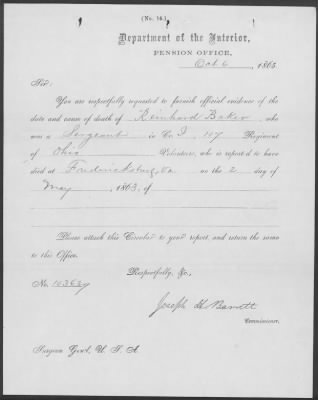 (No. 16.)
Department of the Interior,
PENSION OFFICE,
Oct 6, 1865
Sir:
You are respectfully requested to furnish official evidence of the
date and cause of death of Reinhard Baker, who
was a Sergeant in Co. I, 107 Regiment
of Ohio Volunteers, who is report'd to have
died at Fredericksburg, Va on the 2 day of
May, 1863, of
Please attach this Circular to your report, and return the same
to this Office.
Respectfully, &c.,
No. 103639
Joseph H Barrett
Commissioner.
Surgeon Genl, U. S. A.